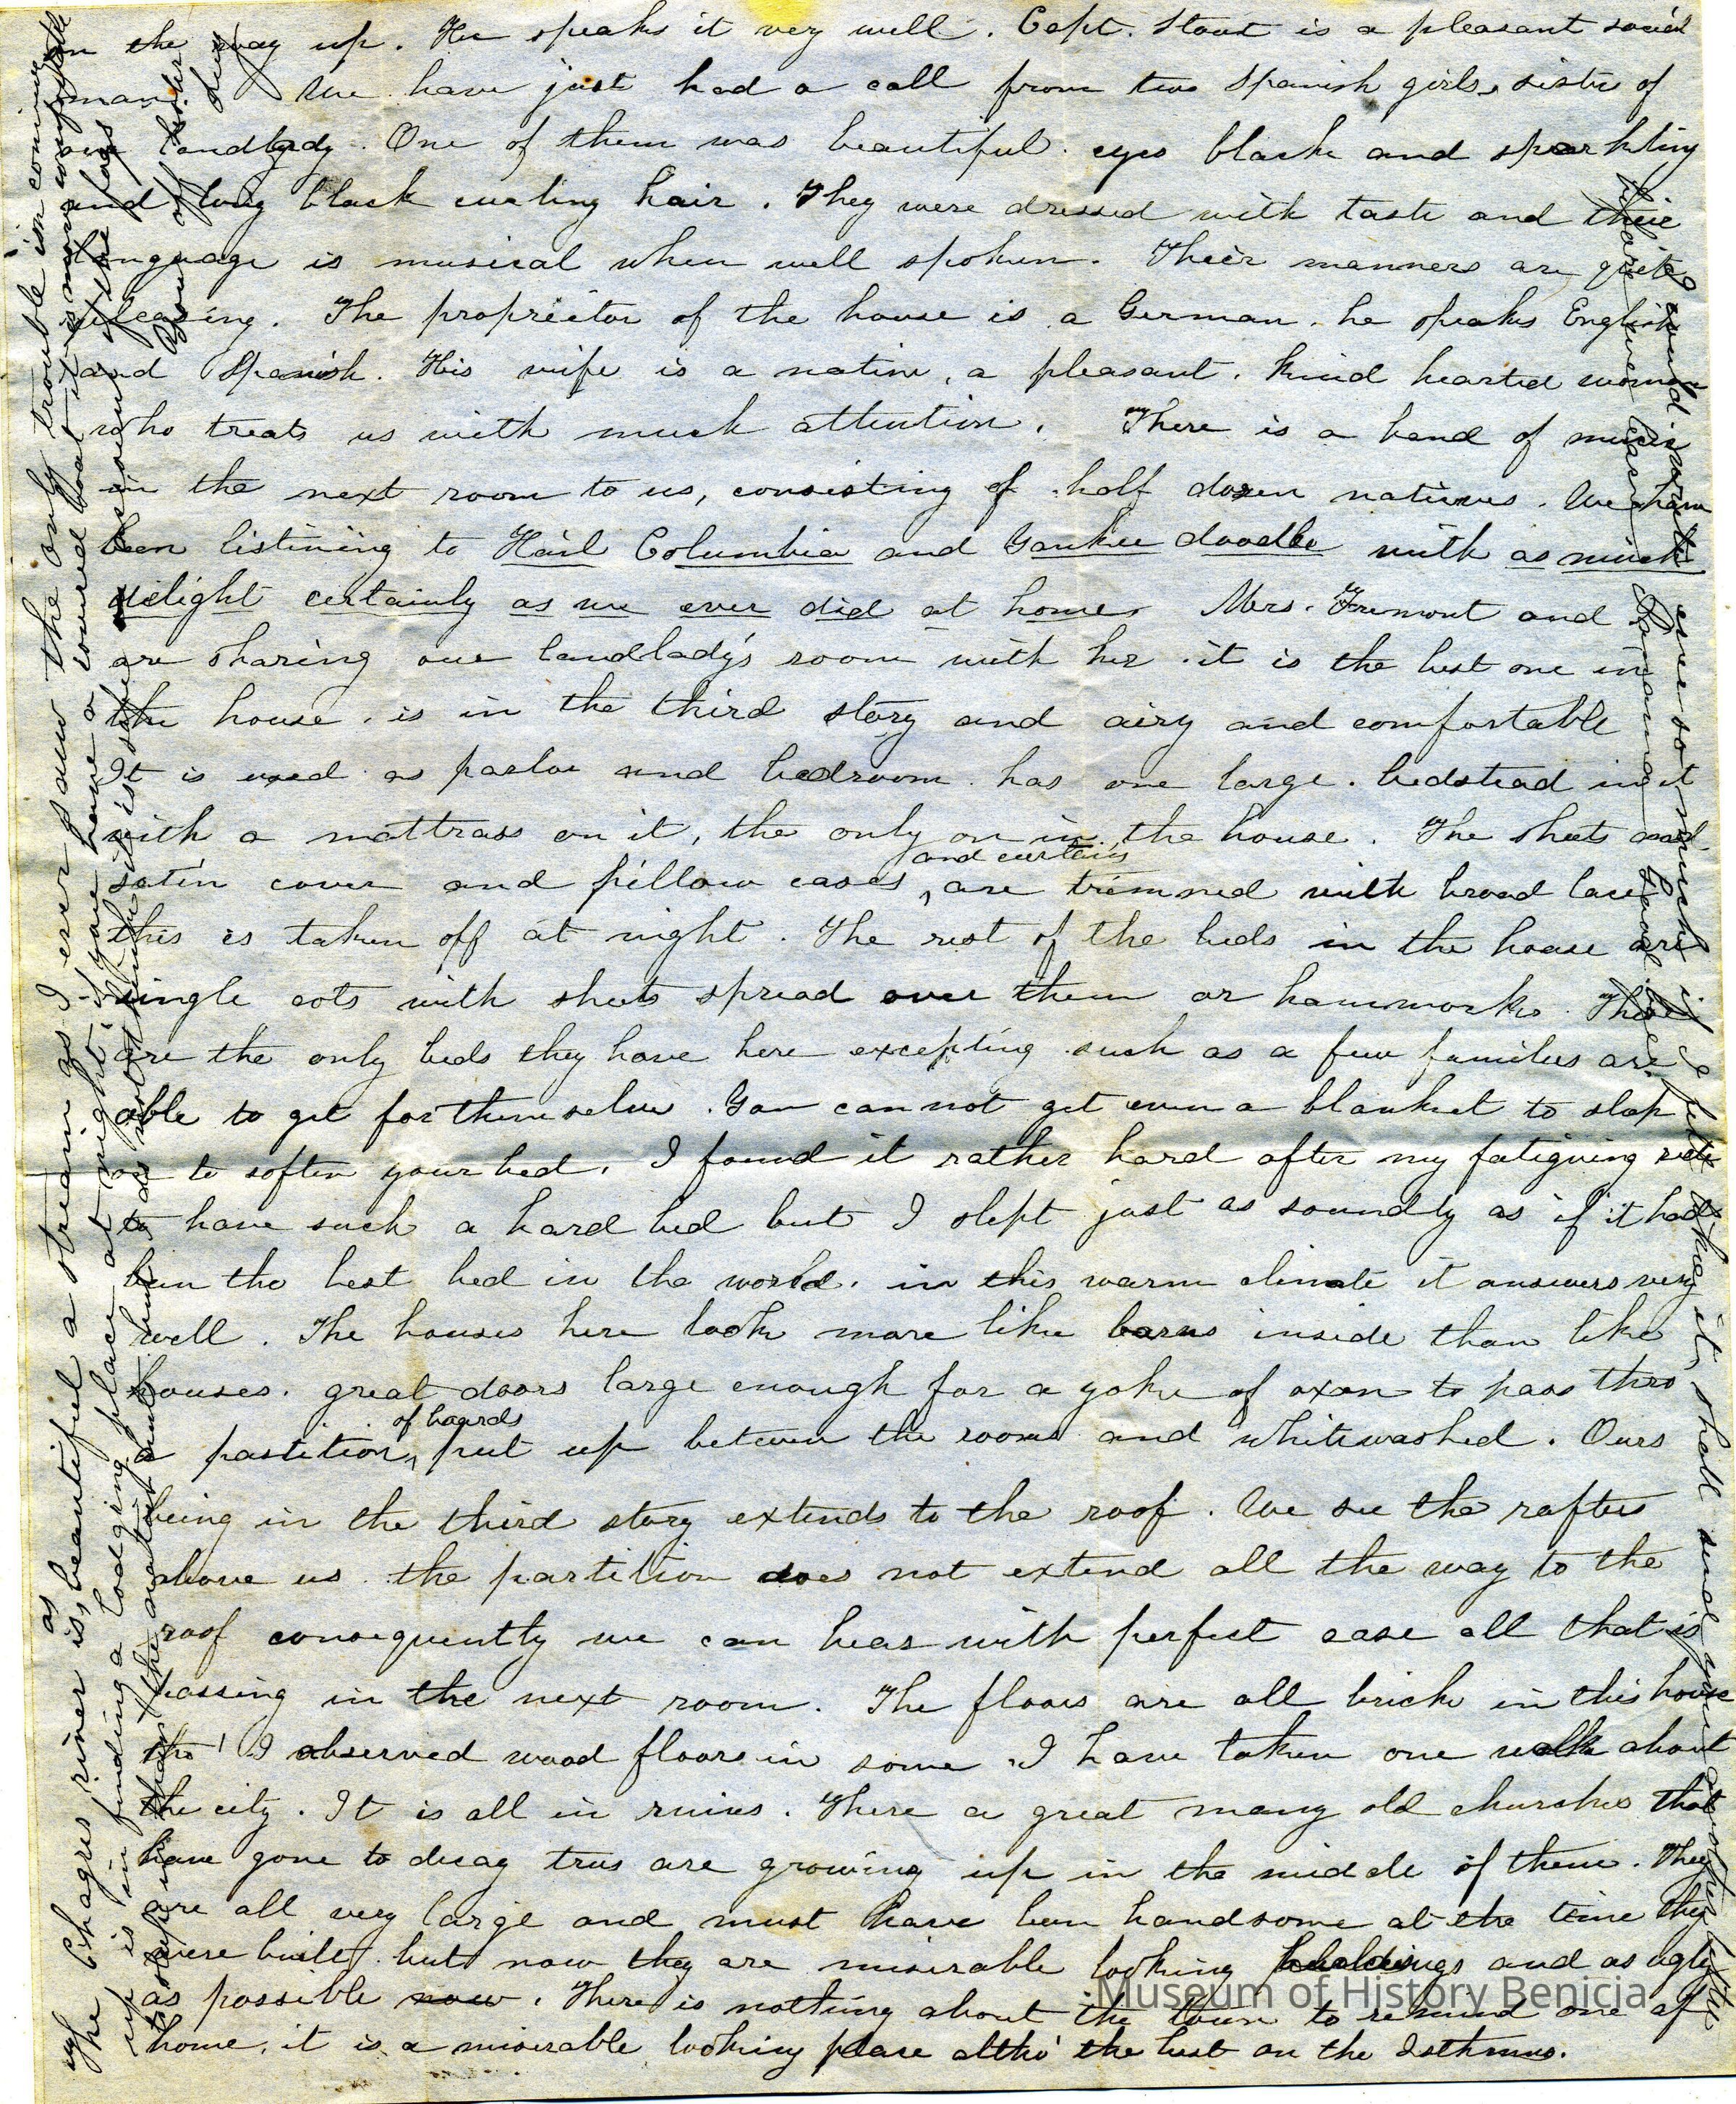 on the way up. He speaks it very well. Capt. Stout is a pleasant social
man. We have just had a call from two Spanish girls, sister of
our landlady. One of them was beautiful. eyes black and sparkling
and long black curling hair. They were dressed with taste and their
language is musical when well spoken. Their manners are quite
pleasing. The proprietor of the house is a German. he speaks English
and Spanish. His wife is a native, a pleasant, kind hearted woman
who treats us with much attention. There is a band of music
in the next room to us, consisting of half dozen natives. We have
been listening to Hail Columbia and Yankee doodle with as much
delight certainly as we ever did at home. Mrs. Fremont and I
are sharing our landlady's room with her. it is the best one in
the house. is in the third story and airy and comfortable
It is used as parlor and bedroom. has one large bedstead in it
with a mattrass on it, the only on in the house. The sheets and
and curtains
satin cover and pillow cases, are trimmed with broad lace
this is taken off at night. The rest of the beds in the house are
single cots with sheets spread over them or hammocks. These
are the only beds they have here excepting such as a few families are
able to get for themselves. You can not get even a blanket to sleep
on to soften your bed. I found it rather hard after my fatiguing ride
to have such a hard bed but I slept just as soundly as if it had
been the best bed in the world. in this warm climate it answers very
well. The houses here look more like barns inside than like
houses. great doors large enough for a yoke of oxen to pass thro
of boards
a partition, put up between the rooms and whitewashed. Ours
being in the third story extends to the roof. We see the rafters
above us. the partition does not extend all the way to the
roof consequently we can hear with perfect ease all that is
passing in the next room. The floors are all brick in this house
tho' I observed wood floors in some. I have taken one walk about
the city. It is all in ruins. There a great many old churches that
have gone to decay trees are growing up in the middle of them. They
are all very large and must have been handsome at the time they
were built. but now they are miserable looking buildings and as ugly
as possible now. There is nothing about the town to remind one of
home. it is a miserable looking place altho' the best on the Isthmus.
as
The Chagres river is, beautiful a stream as I ever saw the only trouble in coming
up is in finding a lodging place at night, if you have a covered boat it is more comfortable
to sleep in than the native huts but it is not think it is safe
on account of the fogs
could write ever so much if I felt like it, shall send you another letter
where we learn Panama
Museum of History Benicia